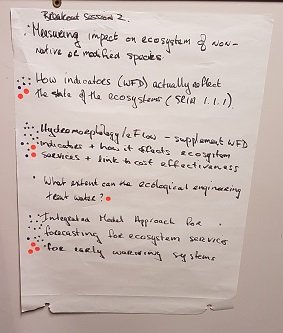 Breakout Session 2.
Measuring impact on ecosystem of non-
native or modified species.
How indicators (WFD) actually reflect
the state of the ecosystems (SRIA 1.1.1).
Hydromorphology/eFlow – supplement WFD
indicators + how it affects ecosystem
services + link to cost effectiveness
What extent can the ecological engineering
treat water?
Integrated Model Approach for
forecasting for ecosystem services
for early warning systems